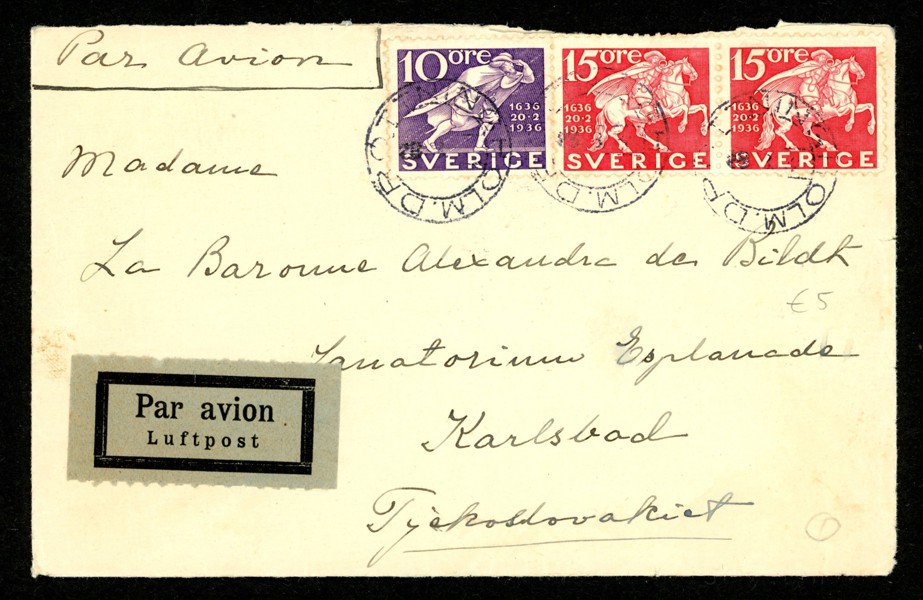 Par Avion
10 öre
1636
20·2
1936
SVERIGE
15 öre
1636
20·2
1936
SVERIGE
15 öre
1636
20·2
1936
SVERIGE
Madame
La Baronne Alexandra de Bildt
€5
Sanatorium Esplanade
Par avion
Luftpost
Karlsbad
Tjekoslovakiet
1